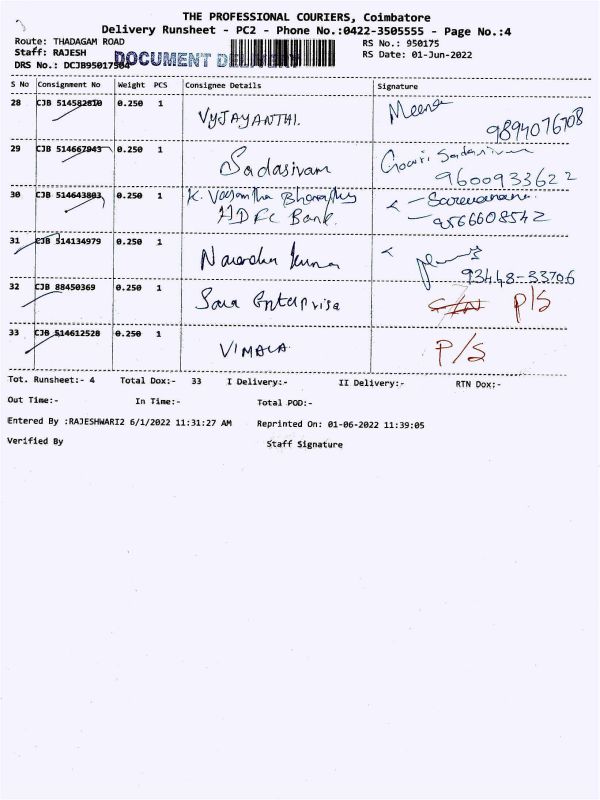 THE PROFESSIONAL COURIERS, Coimbatore
Delivery Runsheet - PC2 - Phone No.:0422-3505555 - Page No.:4
Route: THADAGAM ROAD RS No.: 950175
Staff: RAJESH DOCUMENT RS Date: 01-Jun-2022
DRS No.: DCJB95017504
S No Consignment No Weight PCS Consignee Details Signature
28 CJB 514582810 0.250 1 VYJAYANTHI. Meena
9894076708
29 CJB 514667943 0.250 1 Sadasivam Gowri Sadasivam
9600933622
30 CJB 514643803 0.250 1 K. Vasantha
HDFC Bank. 9566608542
31 CJB 514134979 0.250 1 Narendra Kumar
93448-33706
32 CJB 88450369 0.250 1 Sara Enterprise P/S
33 CJB 514612528 0.250 1 VIMALA P/S
Tot. Runsheet:- 4 Total Dox:- 33 I Delivery:- II Delivery:- RTN Dox:-
Out Time:- In Time:- Total POD:-
Entered By :RAJESHWARI2 6/1/2022 11:31:27 AM Reprinted On: 01-06-2022 11:39:05
Verified By Staff Signature